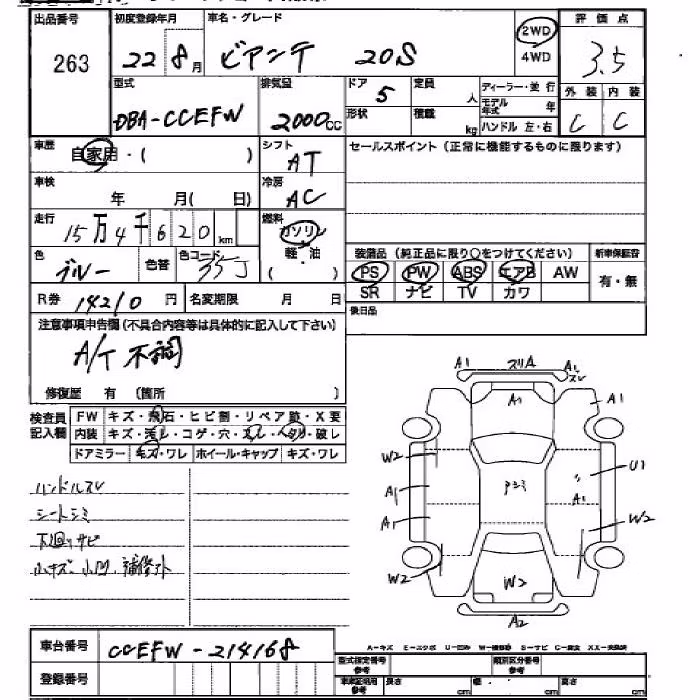 出品番号 初度登録年月 車名・グレード 2WD 評価点
263 22 8月 ビアンテ 20S 4WD 3.5
型式 排気量 ドア 定員 人 ディーラー・並行 外装 内装
DBA-CCEFW 2000cc 5 形状 積載 kg モデル年式 年 C C
ハンドル 左・右
車歴 自家用・( ) シフト AT セールスポイント (正常に機能するものに限ります)
車検 年 月( 日) 冷房 AC
走行 15万4千620km 燃料 ガソリン 装備品 (純正品に限り○をつけてください) 新車保証書
色 ブルー 色替 色コード 35J 軽・油 PS PW ABS エアB AW 有・無
( ) SR ナビ TV カワ
R券 14210円 名変期限 月 日 後日品
注意事項申告欄(不具合内容等は具体的に記入して下さい)
A/T 不調
修復歴 有 (箇所 )
検査員記入欄 FW キズ・飛石・ヒビ割・リペア跡・X要
内装 キズ・汚レ・コゲ・穴・スレ・ヘタリ・破レ
ドアミラー キズ・ワレ ホイール・キャップ キズ・ワレ
ハンドルスレ
シートシミ
下廻りサビ
小キズ、小凹、補修外
A1 スリA A1
スレ
A1 A1
W2 U1
A1 Pシミ A1
A1 W2
W2 W2
A2
A-キズ E-エクボ U-凹み W-補修跡 S-サビ C-腐食 XX-交換済
車台番号 CCEFW-214168
登録番号 型式指定番号 参考 類別区分番号 参考
車庫証明用 参考 長さ cm 幅 cm 高さ cm